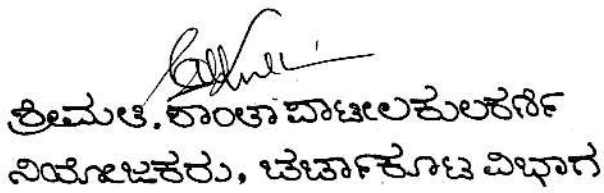 ಶ್ರೀಮತಿ. ಶಾಂತಾ ಪಾಟೀಲಕುಲಕರ್ಣಿ
ನಿಯೋಜಕರು, ಚರ್ಚಾಕೂಟ ವಿಭಾಗ